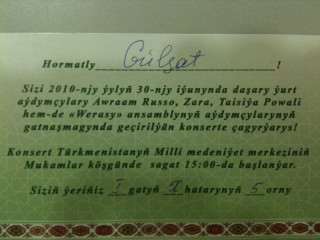 Hormatly Gülşat !
Sizi 2010-njy ýylyň 30-njy iýunynda daşary ýurt
aýdymçylary Awraam Russo, Zara, Taisiýa Powali
hem-de «Werasy» ansamblynyň aýdymçylarynyň
gatnaşmagynda geçirilýän konserte çagyrýarys!
Konsert Türkmenistanyň Milli medeniýet merkeziniň
Mukamlar köşgünde sagat 15:00-da başlanýar.
Siziň ýeriňiz I gatyň 2 hatarynyň 5 orny